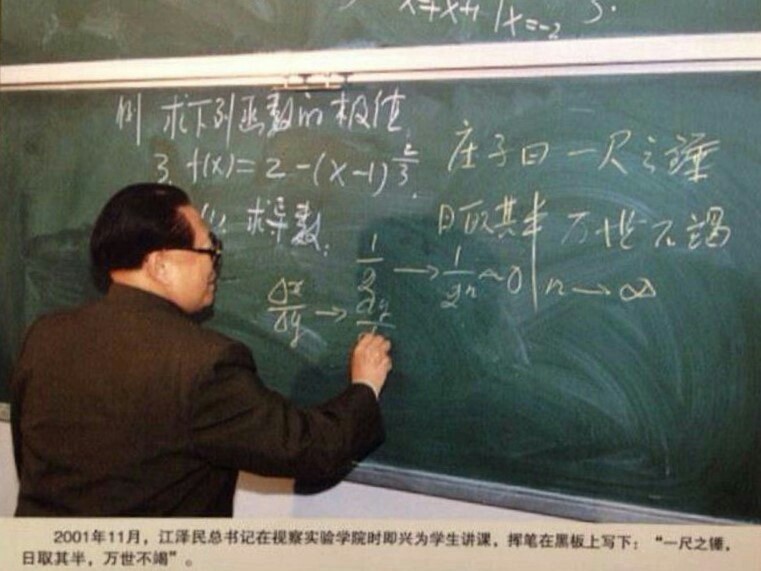 x=-2
例 求下列函数的极值
3. f(x)=2-(x-1)^{2/3}.
(1) 求导数:
庄子曰 一尺之锤
日取其半 万世不竭
1/2 → 1/2ⁿ ~ 0 | n → ∞
Δx/Δy → dy/
2001年11月，江泽民总书记在视察实验学院时即兴为学生讲课，挥笔在黑板上写下：“一尺之锤，
日取其半，万世不竭”。